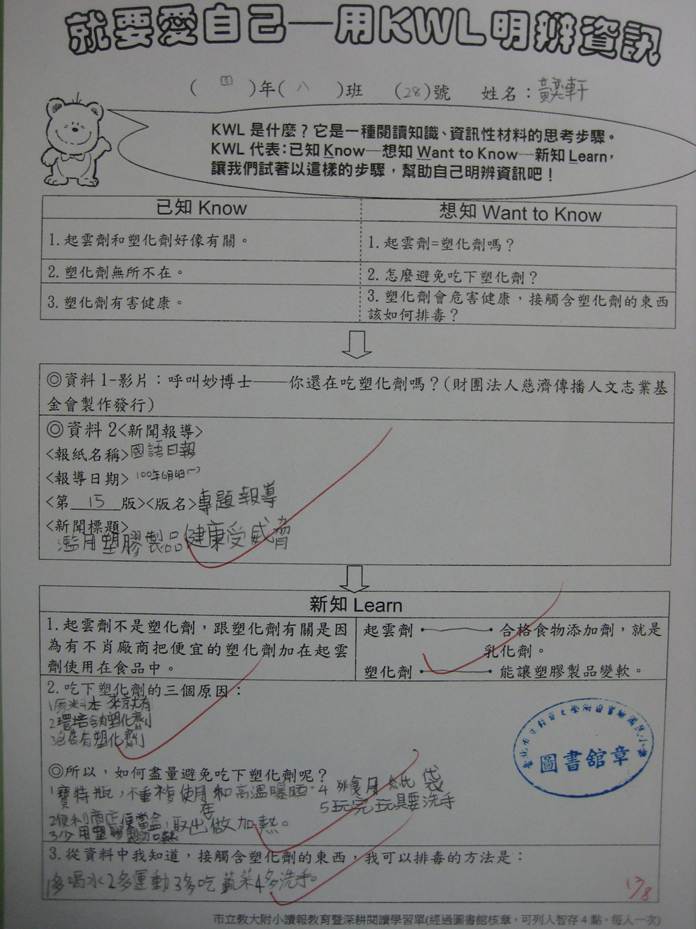 就要愛自己—用KWL明辨資訊
(四)年(八)班 (28)號 姓名:黃奕軒
KWL 是什麼?它是一種閱讀知識、資訊性材料的思考步驟。
KWL 代表:已知 Know—想知 Want to Know—新知 Learn,
讓我們試著以這樣的步驟,幫助自己明辨資訊吧!
已知 Know
想知 Want to Know
1.起雲劑和塑化劑好像有關。
1.起雲劑=塑化劑嗎?
2.塑化劑無所不在。
2.怎麼避免吃下塑化劑?
3.塑化劑有害健康。
3.塑化劑會危害健康,接觸含塑化劑的東西
該如何排毒?
◎資料1-影片:呼叫妙博士——你還在吃塑化劑嗎?(財團法人慈濟傳播人文志業基
金會製作發行)
◎資料2<新聞報導>
<報紙名稱>國語日報
<報導日期>100年6月6日(一)
<第 15 版><版名>專題報導
<新聞標題>
濫用塑膠製品健康受威脅
新知 Learn
1.起雲劑不是塑化劑,跟塑化劑有關是因
為有不肖廠商把便宜的塑化劑加在起雲
劑使用在食品中。
起雲劑 合格食物添加劑,就是
乳化劑。
塑化劑 能讓塑膠製品變軟。
2.吃下塑化劑的三個原因:
1原料本來就有
2環境含有塑化劑
3包裝有塑化劑
圖書館章
◎所以,如何盡量避免吃下塑化劑呢?
1寶特瓶,不重複使用和高溫曝曬 4 外食用紙袋
5玩完玩具要洗手
2便利商店便當盒,取出在做加熱。
3少用塑膠製品
3.從資料中我知道,接觸含塑化劑的東西,我可以排毒的方法是:
1多喝水2多運動3多吃蔬菜4多洗手。
市立教大附小讀報教育暨深耕閱讀學習單(經過圖書館核章,可列入智存4點,每人一次)